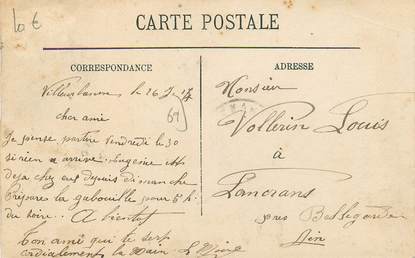 10 €
CARTE POSTALE
CORRESPONDANCE
ADRESSE
Villeurbanne le 26
69
cher ami
Je pense partir vendredi le 30
si rien n arrive. Eugenie est
deja chez eux depuis dimanche
Prépare la gabouille pour 5h.
du soire.. A bientot
Ton ami qui te sert
cordialement la main L
Monsieur
Vollerin Louis
à
Lancrans
près Bellegarde
Ain